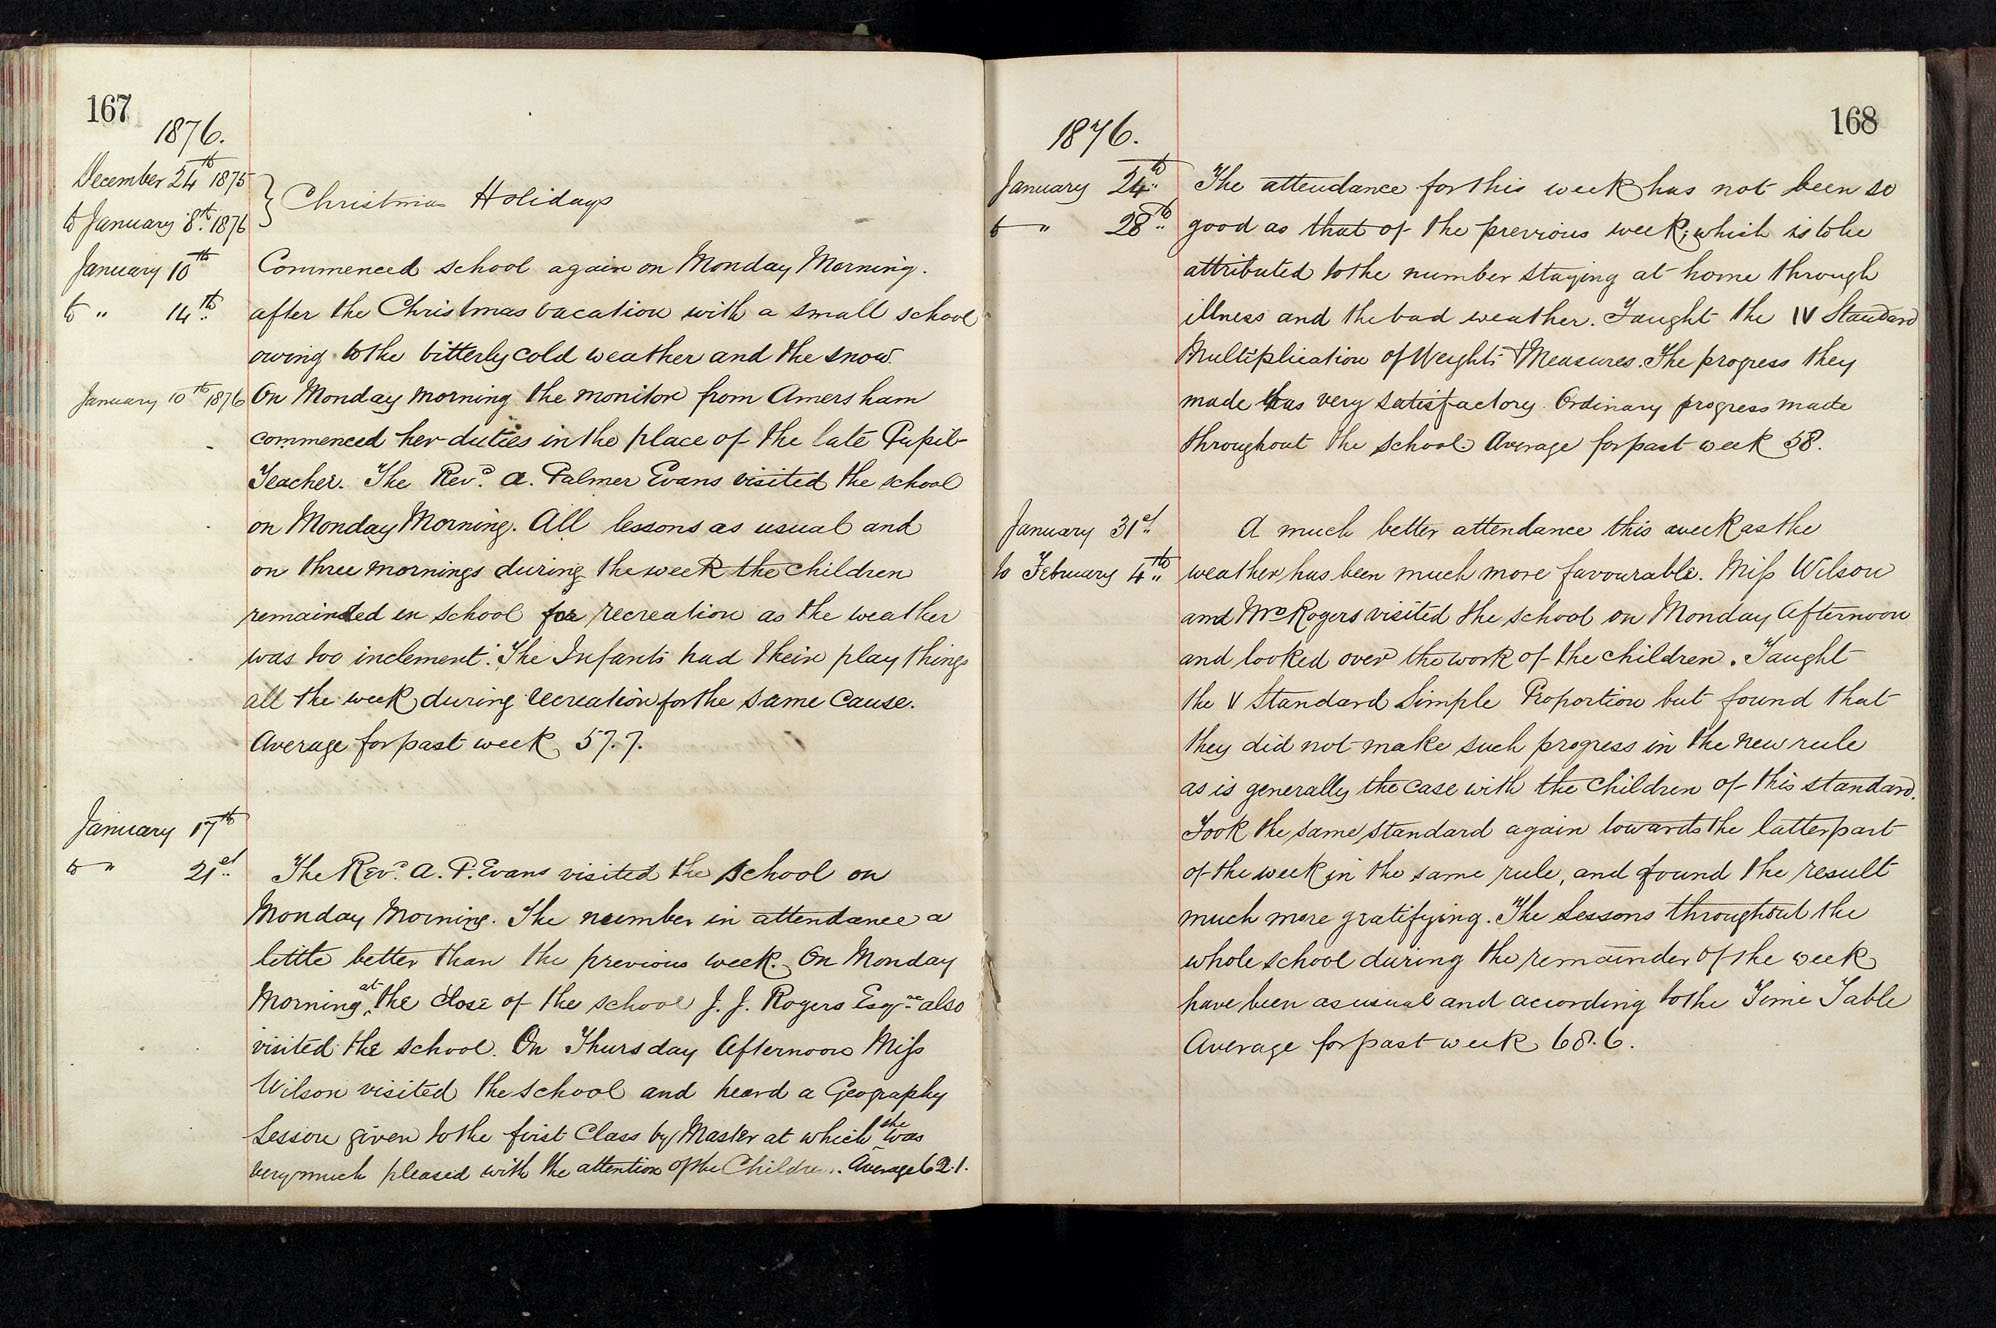 167
1876.
December 24th 1875
to January 8th. 1876
} Christmas Holidays
January 10th
Commenced school again on Monday Morning.
to " 14th
after the Christmas vacation with a small school
owing to the bitterly cold weather and the snow.
January 10th 1876
On Monday morning the monitor from Amersham
commenced her duties in the place of the late Pupil-
Teacher. The Revd. A. Palmer Evans visited the school
on Monday Morning. All lessons as usual and
on three mornings during the week the children
remainded in school for recreation as the weather
was too inclement. The Infants had their play things
all the week during recreation for the same cause.
Average for past week 57.7.
January 17th
to " 21st
The Revd. A. P. Evans visited the school on
Monday Morning. The number in attendance a
little better than the previous week. On Monday
Morning at the close of the school J. J. Rogers Esqre also
visited the school. On Thursday Afternoon Miss
Wilson visited the school and heard a Geography
Lesson given to the first Class by Master at which she was
very much pleased with the attention of the Children. Average 62.1.
168
1876.
January 24th
to " 28th
The attendance for this week has not been so
good as that of the previous week; which is to be
attributed to the number staying at home through
illness and the bad weather. Taught the IV Standard
Multiplication of Weights & Measures. The progress they
made was very satisfactory. Ordinary progress made
throughout the school. Average for past week 58.
January 31st.
to February 4th
A much better attendance this week as the
weather has been much more favourable. Miss Wilson
and Mrs Rogers visited the school on Monday Afternoon
and looked over the work of the children. Taught
the V Standard Simple Proportion but found that
they did not make such progress in the new rule
as is generally the case with the children of this standard.
Took the same standard again towards the latter part
of the week in the same rule, and found the result
much more gratifying. The Lessons throughout the
whole school during the remainder of the week
have been as usual and according to the Time Table
Average for past week 68.6.